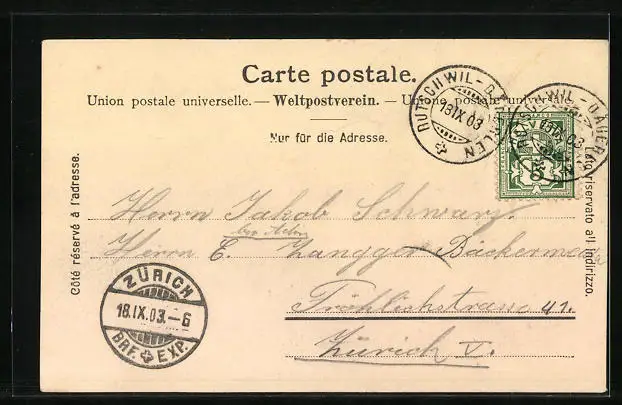 Carte postale.
Union postale universelle. — Weltpostverein. — Unione postale universale.
Nur für die Adresse.
Côté réservé à l'adresse.
Lato riservato all' indirizzo.
RUTSCHWIL-DÄGERLEN
18 IX 03
RUTSCHWIL-DÄGERLEN
5
Herrn Jakob Schwarz.
Herrn C. Zangger Bäckermei
Fröhlichstrasse 41.
Zürich V.
ZÜRICH
18.IX.03.-6
BRF. EXP.